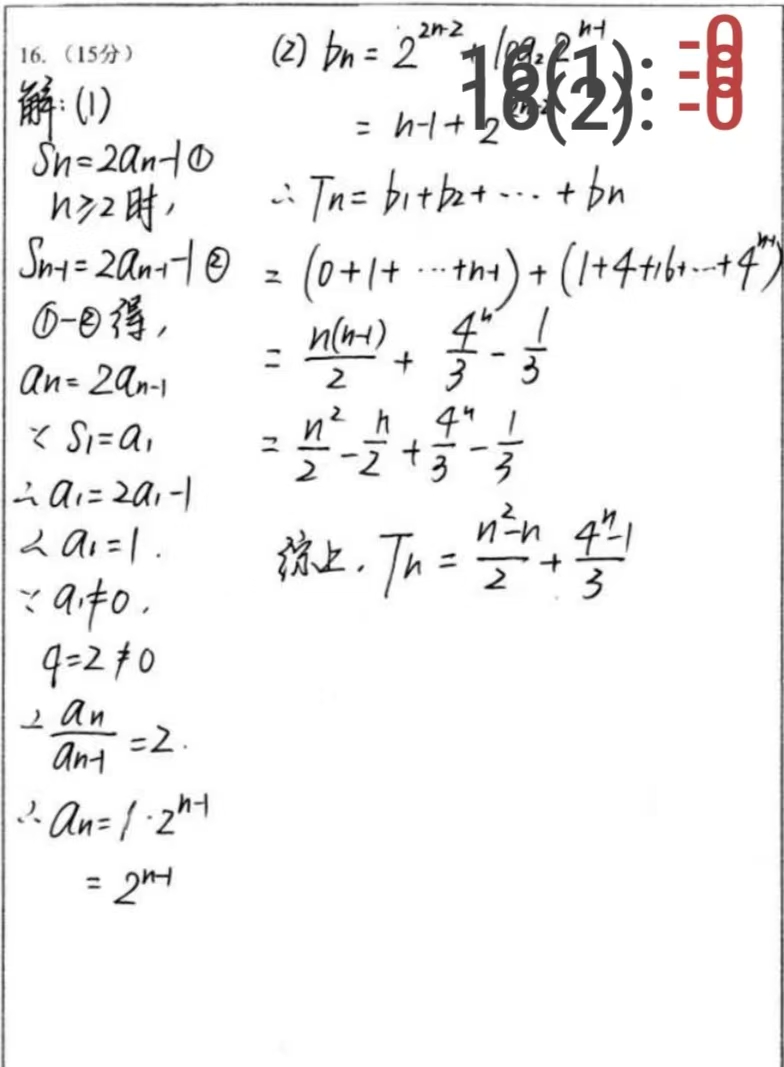 16. （15分）
解：(1)
Sn=2an-1①
n≥2时，
Sn-1=2an-1-1②
①-②得，
an=2an-1
∵ S1=a1
∴a1=2a1-1
∴ a1=1.
∵ a1≠0.
q=2≠0
∴ an/an-1=2.
∴ an=1·2^(n-1)
=2^(n-1)
(2) bn=2^(2n-2)+log2 2^(n-1)
=n-1+2^(2n-2)
∴ Tn=b1+b2+…+bn
=(0+1+…+n-1)+(1+4+16+…+4^(n-1))
=n(n-1)/2+4^n/3-1/3
=n^2/2-n/2+4^n/3-1/3
综上，Tn=(n^2-n)/2+(4^n-1)/3
16(1): -0
16(2): -0